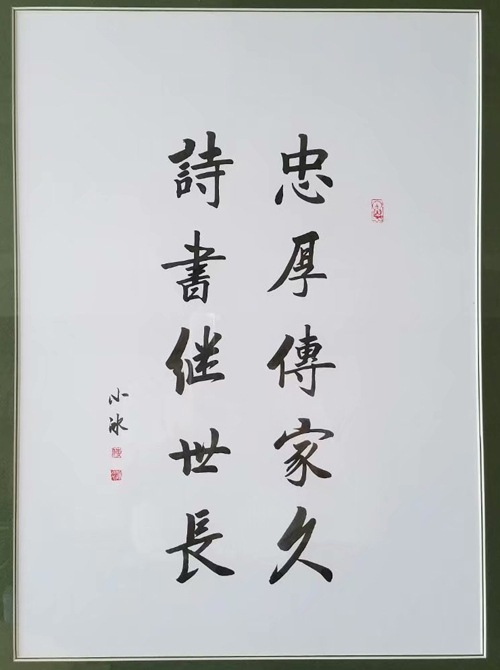 忠厚傳家久
詩書继世長
小冰